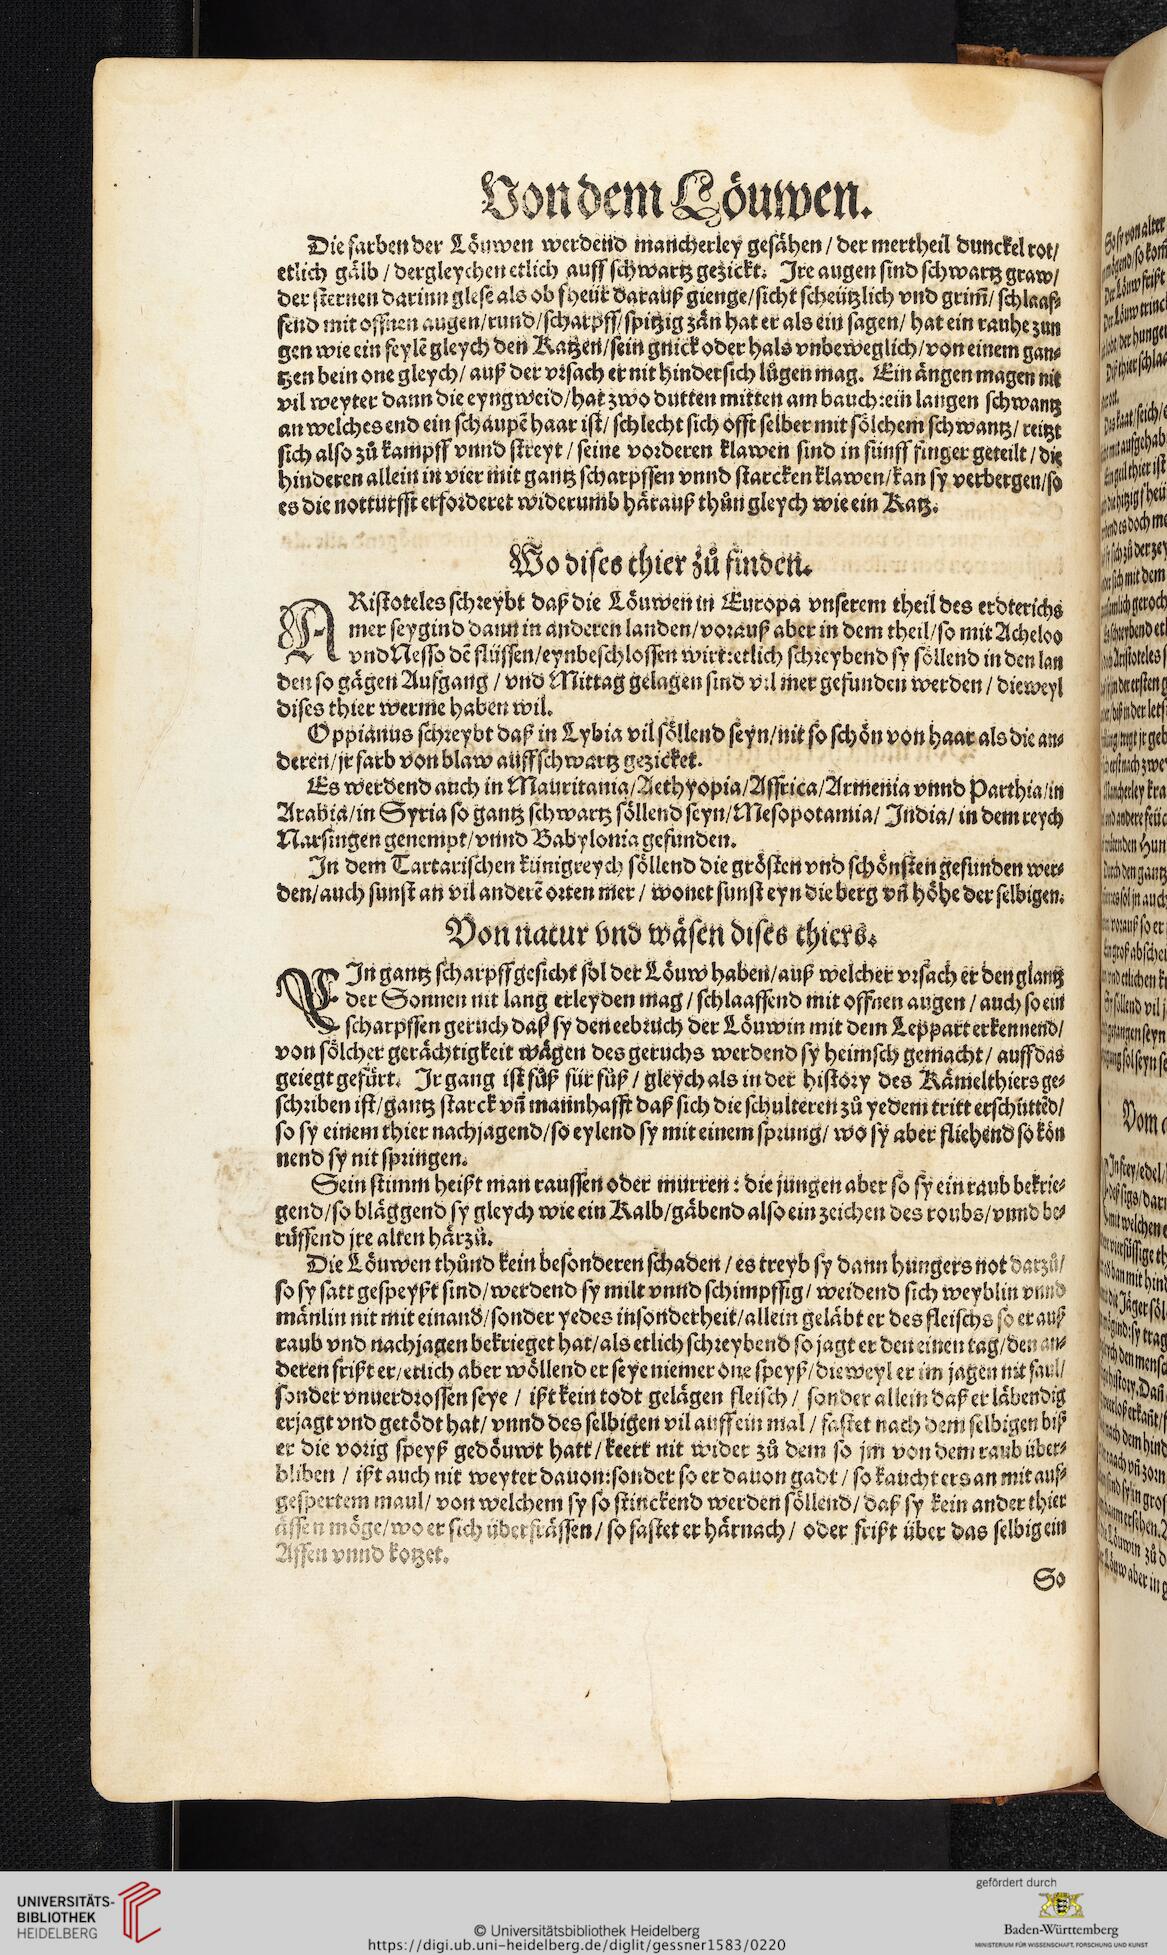 Von dem Löuwen.
Die farben der Löuwen werdend mancherley gesähen / der mertheil dunckel rot/
etlich gälb / dergleychen etlich auff schwartz gezickt. Jre augen sind schwartz graw/
der sternen darinn glese als ob fheür darauß gienge/sicht scheützlich vnd grim̃/ schlaaf⸗
fend mit offnen augen/rund/scharpff/spitzig zän hat er als ein sagen/ hat ein rauhe zun
gen wie ein feylẽ gleych den Katzen/sein gnick oder hals vnbeweglich/von einem gan⸗
tzen bein one gleych/ auß der vrsach er nit hindersich lůgen mag. Ein ängen magen nit
vil weyter dann die eyngweid/hat zwo dutten mitten am bauch:ein langen schwantz
an welches end ein schaupẽ haar ist/ schlecht sich offt selber mit sölchem schwantz/ reitzt
sich also zů kampff vnnd streyt / seine vorderen klawen sind in fünff finger geteilt / die
hinderen allein in vier mit gantz scharpffen vnnd starcken klawen/kan sy verbergen/so
es die notturfft erforderet widerumb härauß thůn gleych wie ein Katz.
Wo dises thier zů finden.
ARistoteles schreybt daß die Löuwen in Europa vnserem theil des erdterichs
mer seygind dann in anderen landen/vorauß aber in dem theil/so mit Acheloo
vnd Nesso dẽ flüssen/eynbeschlossen wirt:etlich schreybend sy söllend in den lan
den so gägen Aufgang / vnd Mittag gelägen sind vil mer gefunden werden / dieweyl
dises thier werme haben wil.
Oppianus schreybt daß in Lybia vil söllend seyn/nit so schön von haar als die an⸗
deren/jr farb von blaw auff schwartz gezicket.
Es werdend auch in Mauritania/Aethyopia/Affrica/Armenia vnnd Parthia/in
Arabia/in Syria so gantz schwartz söllend seyn/Mesopotamia/ India/ in dem reych
Narsingen genempt/vnnd Babylonia gefunden.
In dem Tartarischen künigreych söllend die grösten vnd schönsten gefunden wer⸗
den/auch sunst an vil anderẽ orten mer / wonet sunst eyn die berg vñ höhe der selbigen.
Von natur vnd wäsen dises thiers.
EIn gantz scharpff gesicht sol der Löuw haben/auß welcher vrsach er den glantz
der Sonnen nit lang erleyden mag / schlaaffend mit offnen augen / auch so ein
scharpffen geruch daß sy den eebruch der Löuwin mit dem Leppart erkennend/
von sölcher gerächtigkeit wägen des geruchs werdend sy heimsch gemacht / auff das
geiegt gefürt. Jr gang ist fůß für fůß / gleych als in der history des Kämelthiers ge⸗
schriben ist/gantz starck vñ mannhafft daß sich die schulteren zů yedem tritt erschüttẽd/
so sy einem thier nachjagend/so eylend sy mit einem sprung/ wo sy aber fliehend so kön
nend sy nit springen.
Sein stimm heißt man raussen oder murren : die jungen aber so sy ein raub bekrie⸗
gend/so bläggend sy gleych wie ein Kalb/gäbend also ein zeichen des roubs/vnnd be⸗
rüffend jre alten härzů.
Die Löuwen thůnd kein besonderen schaden / es treyb sy dann hungers not darzů/
so sy satt gespeyßt sind/werdend sy milt vnnd schimpffig/ weidend sich weyblin vnnd
mänlin nit mit einandˀ/sonder yedes insonderheit/allein geläbt er des fleischs so er auß
raub vnd nachjagen bekrieget hat/als etlich schreybend so jagt er den einen tag/den an⸗
deren frißt er/etlich aber wöllend er seye niemer one speyß/dieweyl er im jagen nit faul/
sonder vnuerdrossen seye / ißt kein todt gelägen fleisch / sonder allein daß er läbendig
erjagt vnd getödt hat/ vnnd des selbigen vil auff ein mal / fastet nach dem selbigen biß
er die vorig speyß gedöuwt hatt / keert nit wider zů dem so jm von dem raub über⸗
bliben / ißt auch nit weyter dauon:sonder so er dauon gadt / so kaucht ers an mit auf⸗
gespertem maul/ von welchem sy so stinckend werden söllend/ daß sy kein ander thier
ässen möge/wo er sich überfrässen / so fastet er härnach / oder frißt über das selbig ein
Affen vnnd kotzet.
So
UNIVERSITÄTS-
BIBLIOTHEK
HEIDELBERG
© Universitätsbibliothek Heidelberg
https://digi.ub.uni-heidelberg.de/diglit/gessner1583/0220
gefördert durch
Baden-Württemberg
MINISTERIUM FÜR WISSENSCHAFT, FORSCHUNG UND KUNST